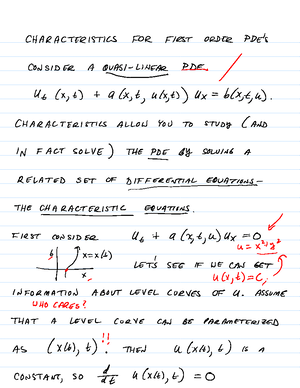 CHARACTERISTICS FOR FIRST ORDER PDE's
CONSIDER A QUASI-LINEAR PDE
u_t (x,t) + a(x,t,u(x,t)) u_x = b(x,t,u).
CHARACTERISTICS ALLOW YOU TO STUDY (AND
IN FACT SOLVE) THE PDE BY SOLVING A
RELATED SET OF DIFFERENTIAL EQUATIONS–
THE CHARACTERISTIC EQUATIONS.
FIRST CONSIDER u_t + a(x,t,u) u_x = 0
u = x²+y²
t x=x(t)
x
LET'S SEE IF WE CAN GET
u(x,t)=C,
INFORMATION ABOUT LEVEL CURVES OF u. ASSUME
WHO CARES?
THAT A LEVEL CURVE CAN BE PARAMETERIZED
AS (x(t), t) !! . THEN u(x(t), t) IS A
CONSTANT, SO d/dt u(x(t), t) = 0